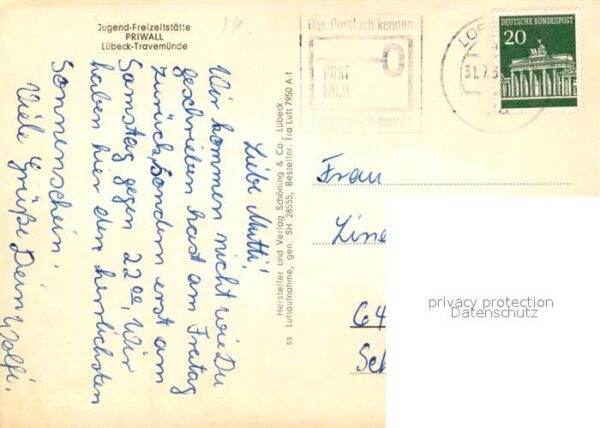 Jugend-Freizeitstätte
PRIWALL
Lübeck-Travemünde
Liebe Mutti!
Wir kommen nicht wie Du
geschrieben hast am Freitag
zurück, sondern erst am
Samstag gegen 22.00, Wir
haben hier den herrlichsten
Sonnenschein!
Viele Grüße Dein Wolfi.
Hersteller und Verlag Schöning & Co., Lübeck
ss Luftaufnahme, gen. SH 28555, Bestellnr. Tra Luft 7950 A-f
Das Postfach kennen
POST
FACH
das Postfach nennen
31.7.
DEUTSCHE BUNDESPOST
20
Frau
64
privacy protection
Datenschutz